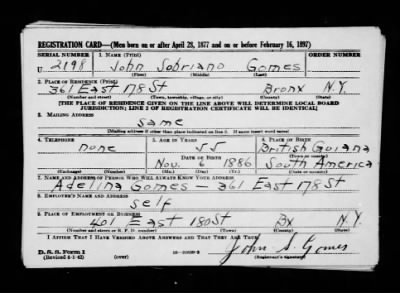 REGISTRATION CARD—(Men born on or after April 28, 1877 and on or before February 16, 1897)
SERIAL NUMBER 1. NAME (Print) ORDER NUMBER
U 2198 John Sobriano Gomes
(First) (Middle) (Last)
2. PLACE OF RESIDENCE (Print)
361 East 178 St Bronx N.Y.
(Number and street) (Town, township, village, or city) (County) (State)
[THE PLACE OF RESIDENCE GIVEN ON THE LINE ABOVE WILL DETERMINE LOCAL BOARD
JURISDICTION; LINE 2 OF REGISTRATION CERTIFICATE WILL BE IDENTICAL]
3. MAILING ADDRESS
same
[Mailing address if other than place indicated on line 2. If same insert word same]
4. TELEPHONE 5. AGE IN YEARS 6. PLACE OF BIRTH
none 55 British Guiana
DATE OF BIRTH (Town or county)
Nov. 6 1886 South America
(Exchange) (Number) (Mo.) (Day) (Yr.) (State or country)
7. NAME AND ADDRESS OF PERSON WHO WILL ALWAYS KNOW YOUR ADDRESS
Adelina Gomes — 361 East 178 St
8. EMPLOYER'S NAME AND ADDRESS
self
9. PLACE OF EMPLOYMENT OR BUSINESS
401 East 180 St Bx N.Y.
(Number and street or R. F. D. number) (Town) (County) (State)
I AFFIRM THAT I HAVE VERIFIED ABOVE ANSWERS AND THAT THEY ARE TRUE.
John S. Gomes
D. S. S. Form 1
(Revised 4-1-42) (over) (Registrant's signature)